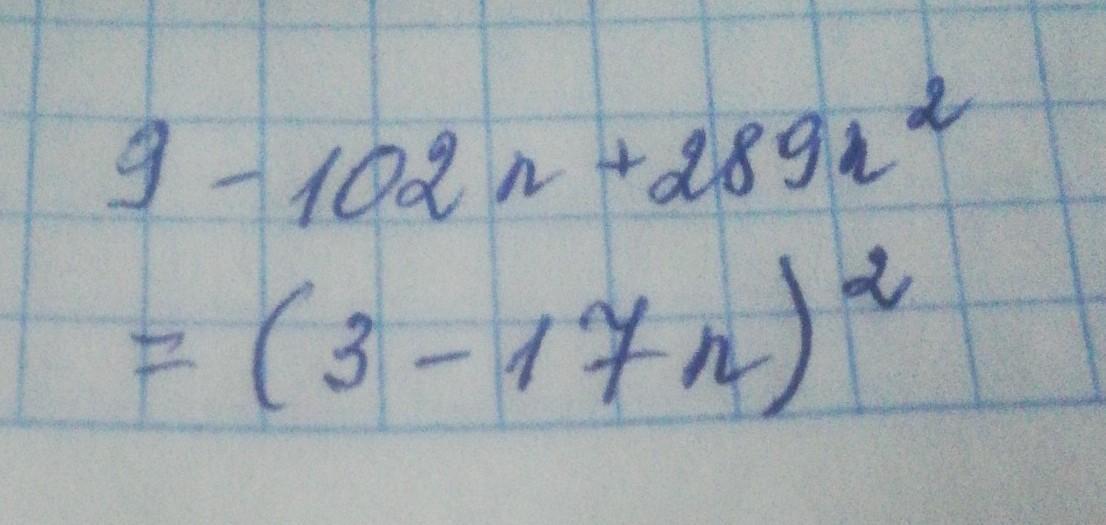 9 - 102n + 289n²
= (3 - 17n)²